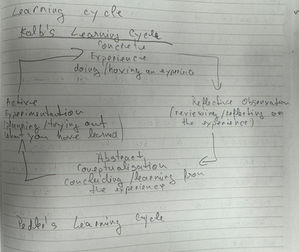 Learning cycle
Kolb's Learning Cycle
Concrete
Experience
doing/having an experience
Active
Experimentation
(planning/trying out
what you have learned)
Reflective Observation
(reviewing/reflecting on
the experience)
Abstract
Conceptualisation
Concluding/learning from
the experience
Pedler's Learning Cycle